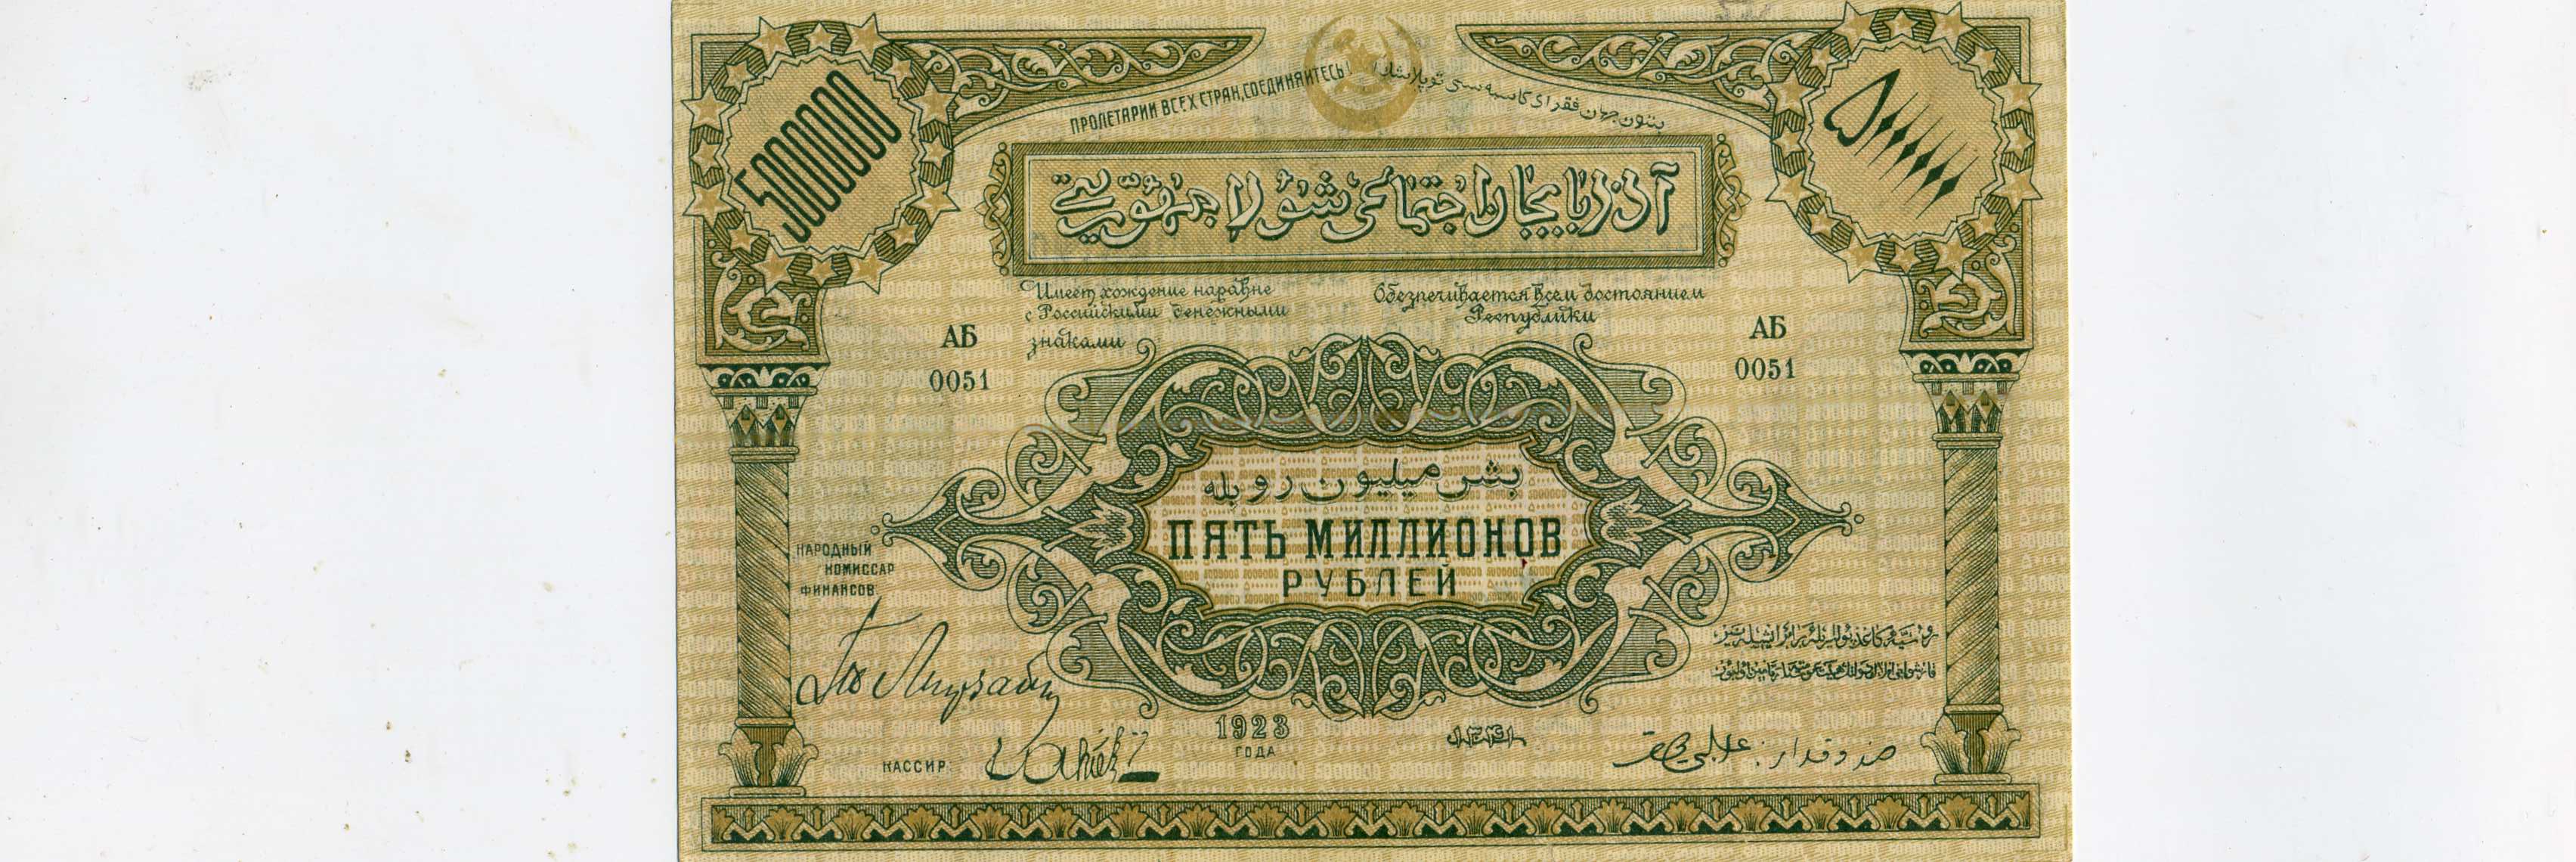 ПРОЛЕТАРИИ ВСЕХ СТРАН, СОЕДИНЯЙТЕСЬ!
بتون جهان فقرای کاسبه سی توپلاشک!
5000000
۵۰۰۰۰۰۰
آذربایجان اجتماعی شولار جمهوریتی
Имеет хождение наравне
с Российскими денежными
знаками
Обезпечивается всем достоянием
Республики
АБ
0051
АБ
0051
بش میلیون روبله
ПЯТЬ МИЛЛИОНОВ
РУБЛЕЙ
НАРОДНЫЙ
КОМИССАР
ФИНАНСОВ
1923
ГОДА
КАССИР
صندوقدار: